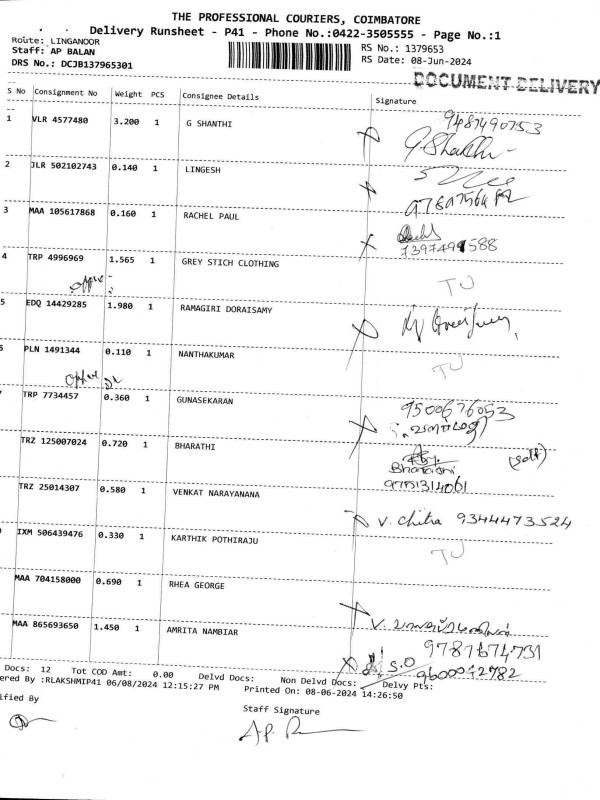 THE PROFESSIONAL COURIERS, COIMBATORE
Delivery Runsheet - P41 - Phone No.:0422-3505555 - Page No.:1
Route: LINGANOOR
Staff: AP BALAN
DRS No.: DCJB137965301
RS No.: 1379653
RS Date: 08-Jun-2024
DOCUMENT DELIVERY
S No Consignment No Weight PCS Consignee Details Signature
1 VLR 4577480 3.200 1 G SHANTHI 9487490753
G. Shanthi
2 JLR 502102743 0.140 1 LINGESH
3 MAA 105617868 0.160 1 RACHEL PAUL
4 TRP 4996969 1.565 1 GREY STICH CLOTHING TU
5 EDQ 14429285 1.980 1 RAMAGIRI DORAISAMY
PLN 1491344 0.110 1 NANTHAKUMAR TU
TRP 7734457 0.360 1 GUNASEKARAN 9500676053
TRZ 125007024 0.720 1 BHARATHI (self)
Bharathi
9781314061
TRZ 25014307 0.580 1 VENKAT NARAYANANA V. Chitra 9344473524
IXM 506439476 0.330 1 KARTHIK POTHIRAJU TU
MAA 704158000 0.690 1 RHEA GEORGE
9787674731
MAA 865693650 1.450 1 AMRITA NAMBIAR S.O
9600042782
Docs: 12 Tot COD Amt: 0.00 Delvd Docs: Non Delvd Docs: Delvy Pts:
ered By :RLAKSHMIP41 06/08/2024 12:15:27 PM Printed On: 08-06-2024 14:26:50
ified By Staff Signature